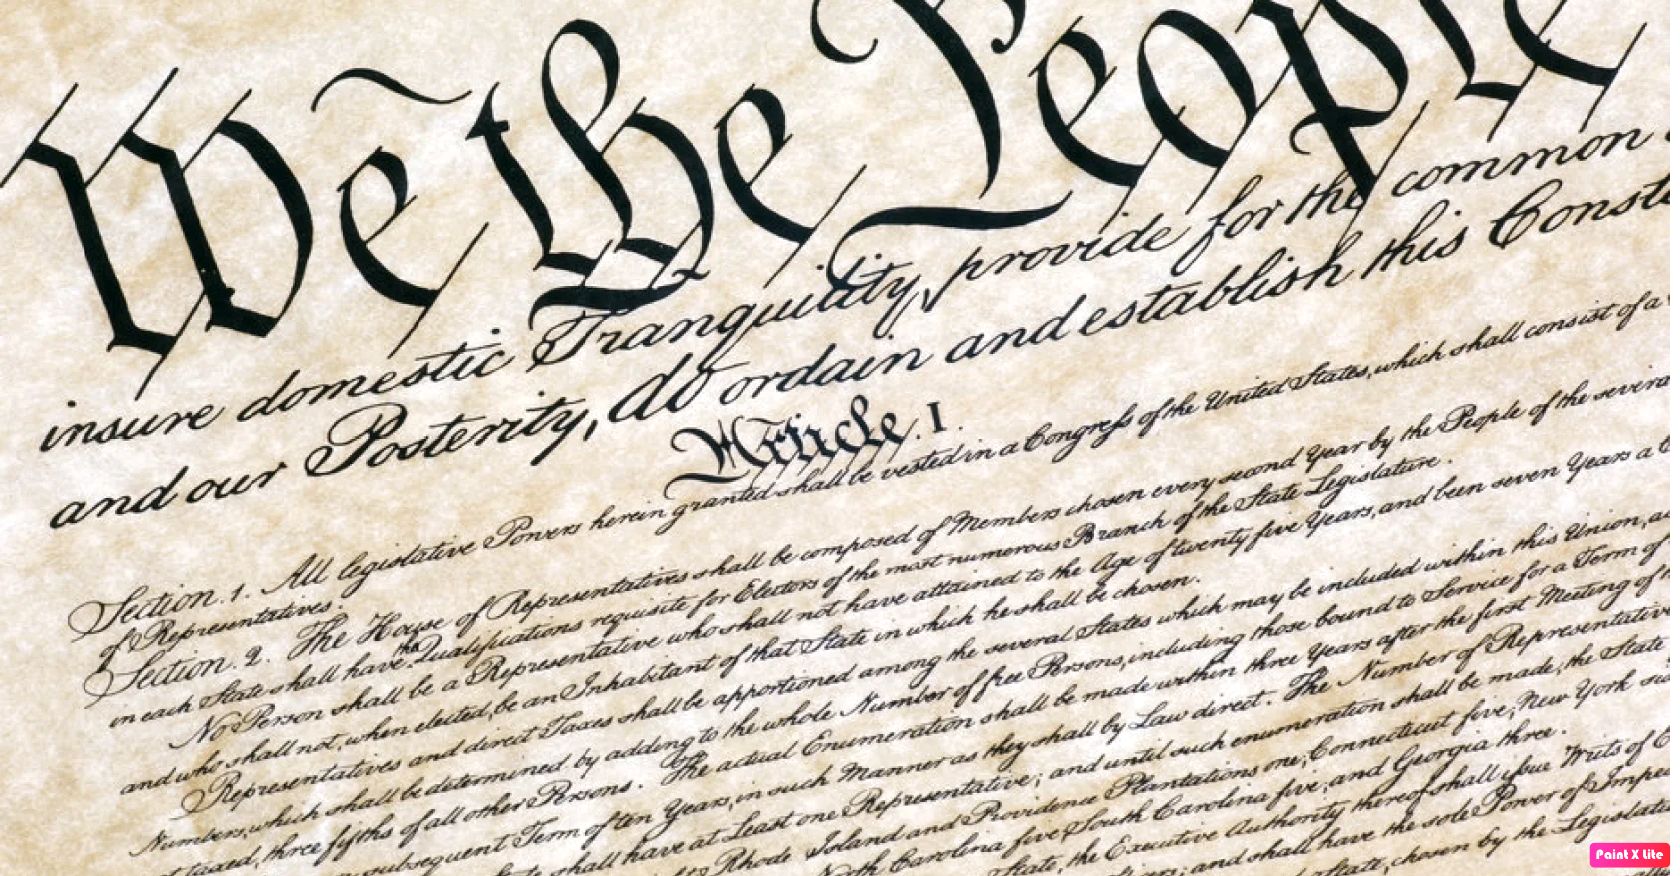 We the People
insure domestic Tranquility, provide for the common
and our Posterity, do ordain and establish this Const
Article. I.
Section. 1. All legislative Powers herein granted shall be vested in a Congress of the United States, which shall consist of a
of Representatives.
Section. 2. The House of Representatives shall be composed of Members chosen every second Year by the People of the several
in each State shall have the Qualifications requisite for Electors of the most numerous Branch of the State Legislature.
No Person shall be a Representative who shall not have attained to the Age of twenty five Years, and been seven Years a
and who shall not, when elected, be an Inhabitant of that State in which he shall be chosen.
Representatives and direct Taxes shall be apportioned among the several States which may be included within this Union, ac
Numbers, which shall be determined by adding to the whole Number of free Persons, including those bound to Service for a Term of
taxed, three fifths of all other Persons. The actual Enumeration shall be made within three Years after the first Meeting of
subsequent Term of ten Years, in such Manner as they shall by Law direct. The Number of Representatives
shall have at Least one Representative; and until such enumeration shall be made, the State
Rhode Island and Providence Plantations one, Connecticut five, New York six
Carolina five, South Carolina five, and Georgia three.
State, the Executive Authority thereof shall issue Writs of E
and shall have the sole Power of Impea
State, chosen by the Legislatu
Paint X Lite